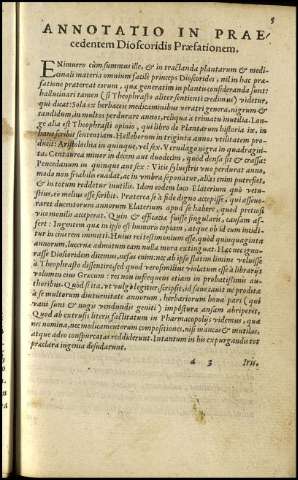 5
ANNOTATIO IN PRAE/
cedentem Dioscoridis Præfationem.
ENimuero cùm summus ille, & in tractanda plantarum & medi-
cinalis materia omnium facilè princeps Dioscorides, nil in hac præ-
fatione prætereat eorum, quæ generatim in plantis consideranda sunt:
hallucinari tamen (si Theophrasto aliter sentienti credimus) videtur,
qui duas Solas ex herbaceis medicaminibus veratri genera, nigrum &
candidum, in multos perdurare annos, reliqua à trimatu inutilia. Lon-
ge alia est Theophrasti opinio, qui libro de Plantarum historia ix. in
hanc scribit sententiam. Helleborum in triginta annos vtilitatem pro-
ducit: Aristolochia in quinque, vel sex. Verulago nigra in quadragin-
ta: Centaurea minor in decem aut duodecim, quòd densa sit & crassa:
Peucedanum in quinque aut sex: Vitis syluestris vno perdurat anno,
modo non friabilis euadat, ac in vmbra seponitur, aliàs enim putrescit,
& in totum redditur inutilis. Idem eodem loco Elaterium quò vetu-
stius, eo melius esse scribit. Præterea se à fide digno accepisse, qui asseue-
raret ducentorum annorum Elaterium apud se haberi, quod pretiosi
vice muneris acceperat. Quin & efficacia fuisse singularis, causam af-
fert: Ingentem quia in ipso est humoris copiam, atque ob id eum inutili-
ter in cinerem immitti. Huius rei testimonium esse, quòd quinquaginta
annorum, lucerna admotum eam nulla mora extinguat. Hæc nec igno-
rasse Dioscoridem dicemus,
à Theophrasto dissentire: sed quod verisimilius
volumus eius
Quòd si ita, vt vulgò legitur, scripsit, id sane cauit ne prodita
à se multorum diuturnitate annorum, herbariorum bona pars (qui
vani sunt & augis vendundis geniti) impostura ansam abriperet.
Quod ab extrusis literis factitatum in Pharmacopolijs videmus, qua
nec nomina, nec medicamentorum compositiones, nisi mancas & mutilas,
atque adeo conspurcatas reddiderunt. In tantum in his expurgandis tot
præclara ingenia desudarunt.
a 3 Iris.